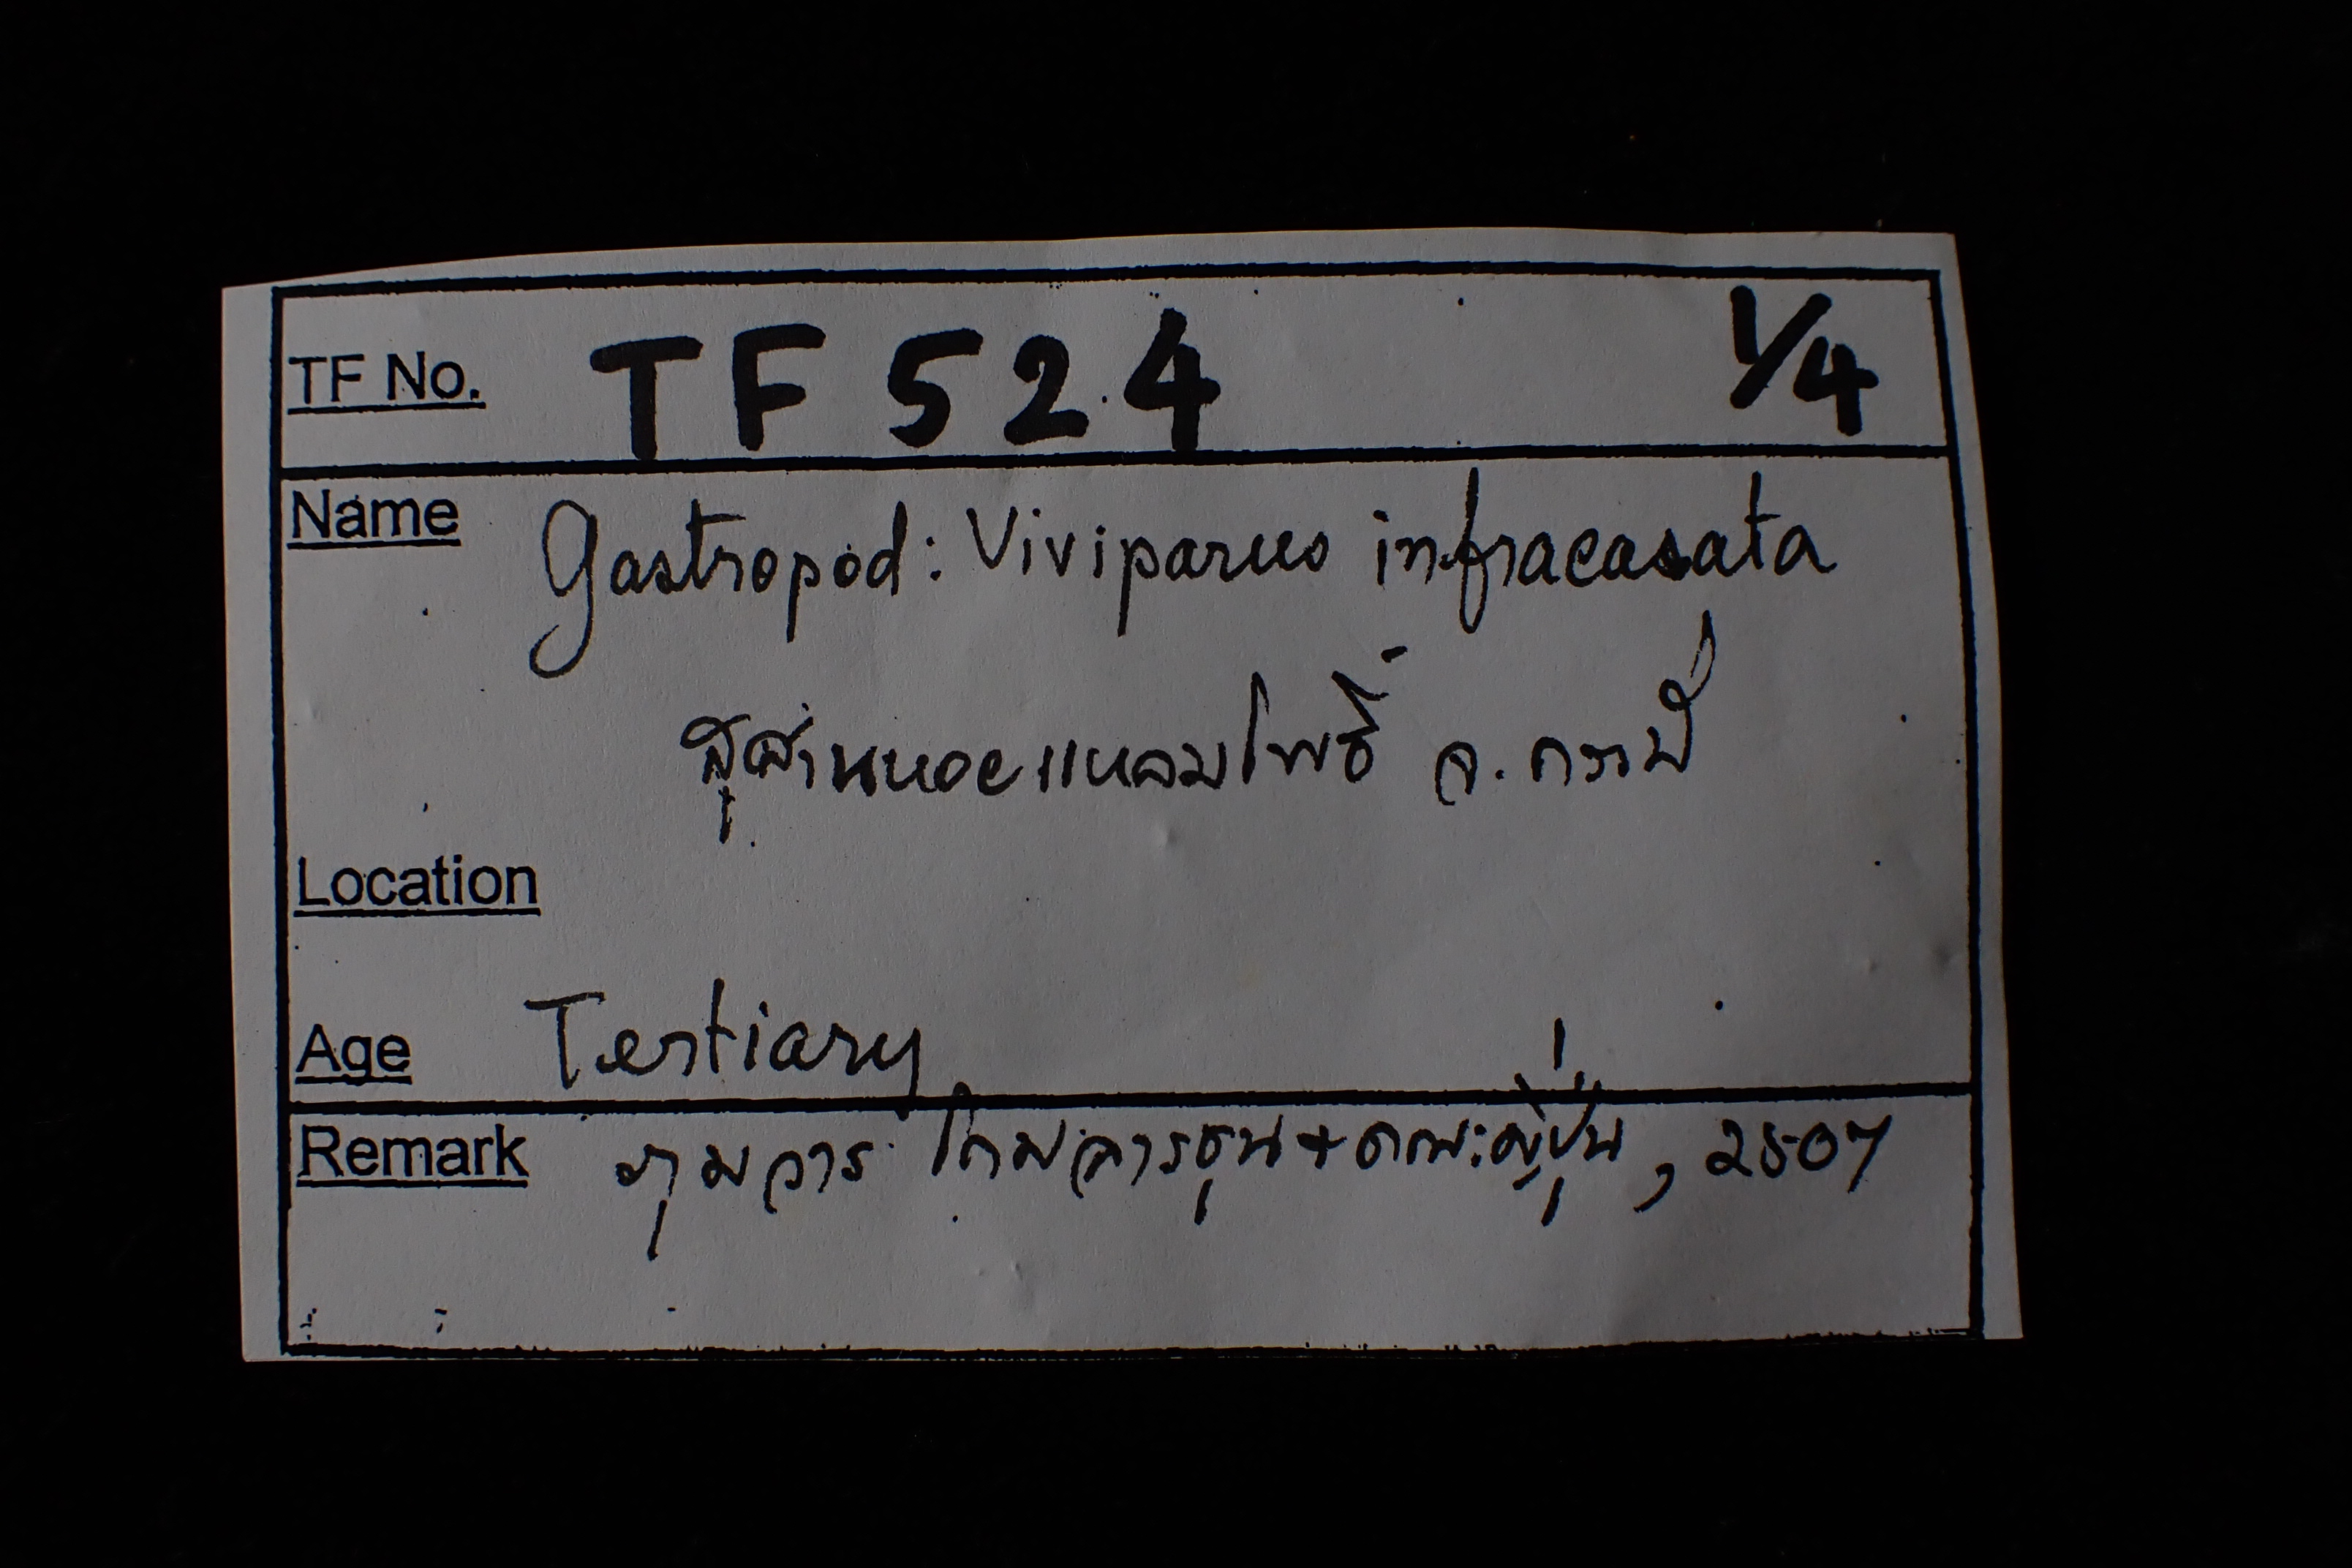 TF No. TF 524 1/4
Name Gastropod: Viviparus infracasata
สุสานหอยแหลมโพธิ์ จ. กระบี่
Location
Age Tertiary
Remark โกมลารชุน + คณะญี่ปุ่น, 2507